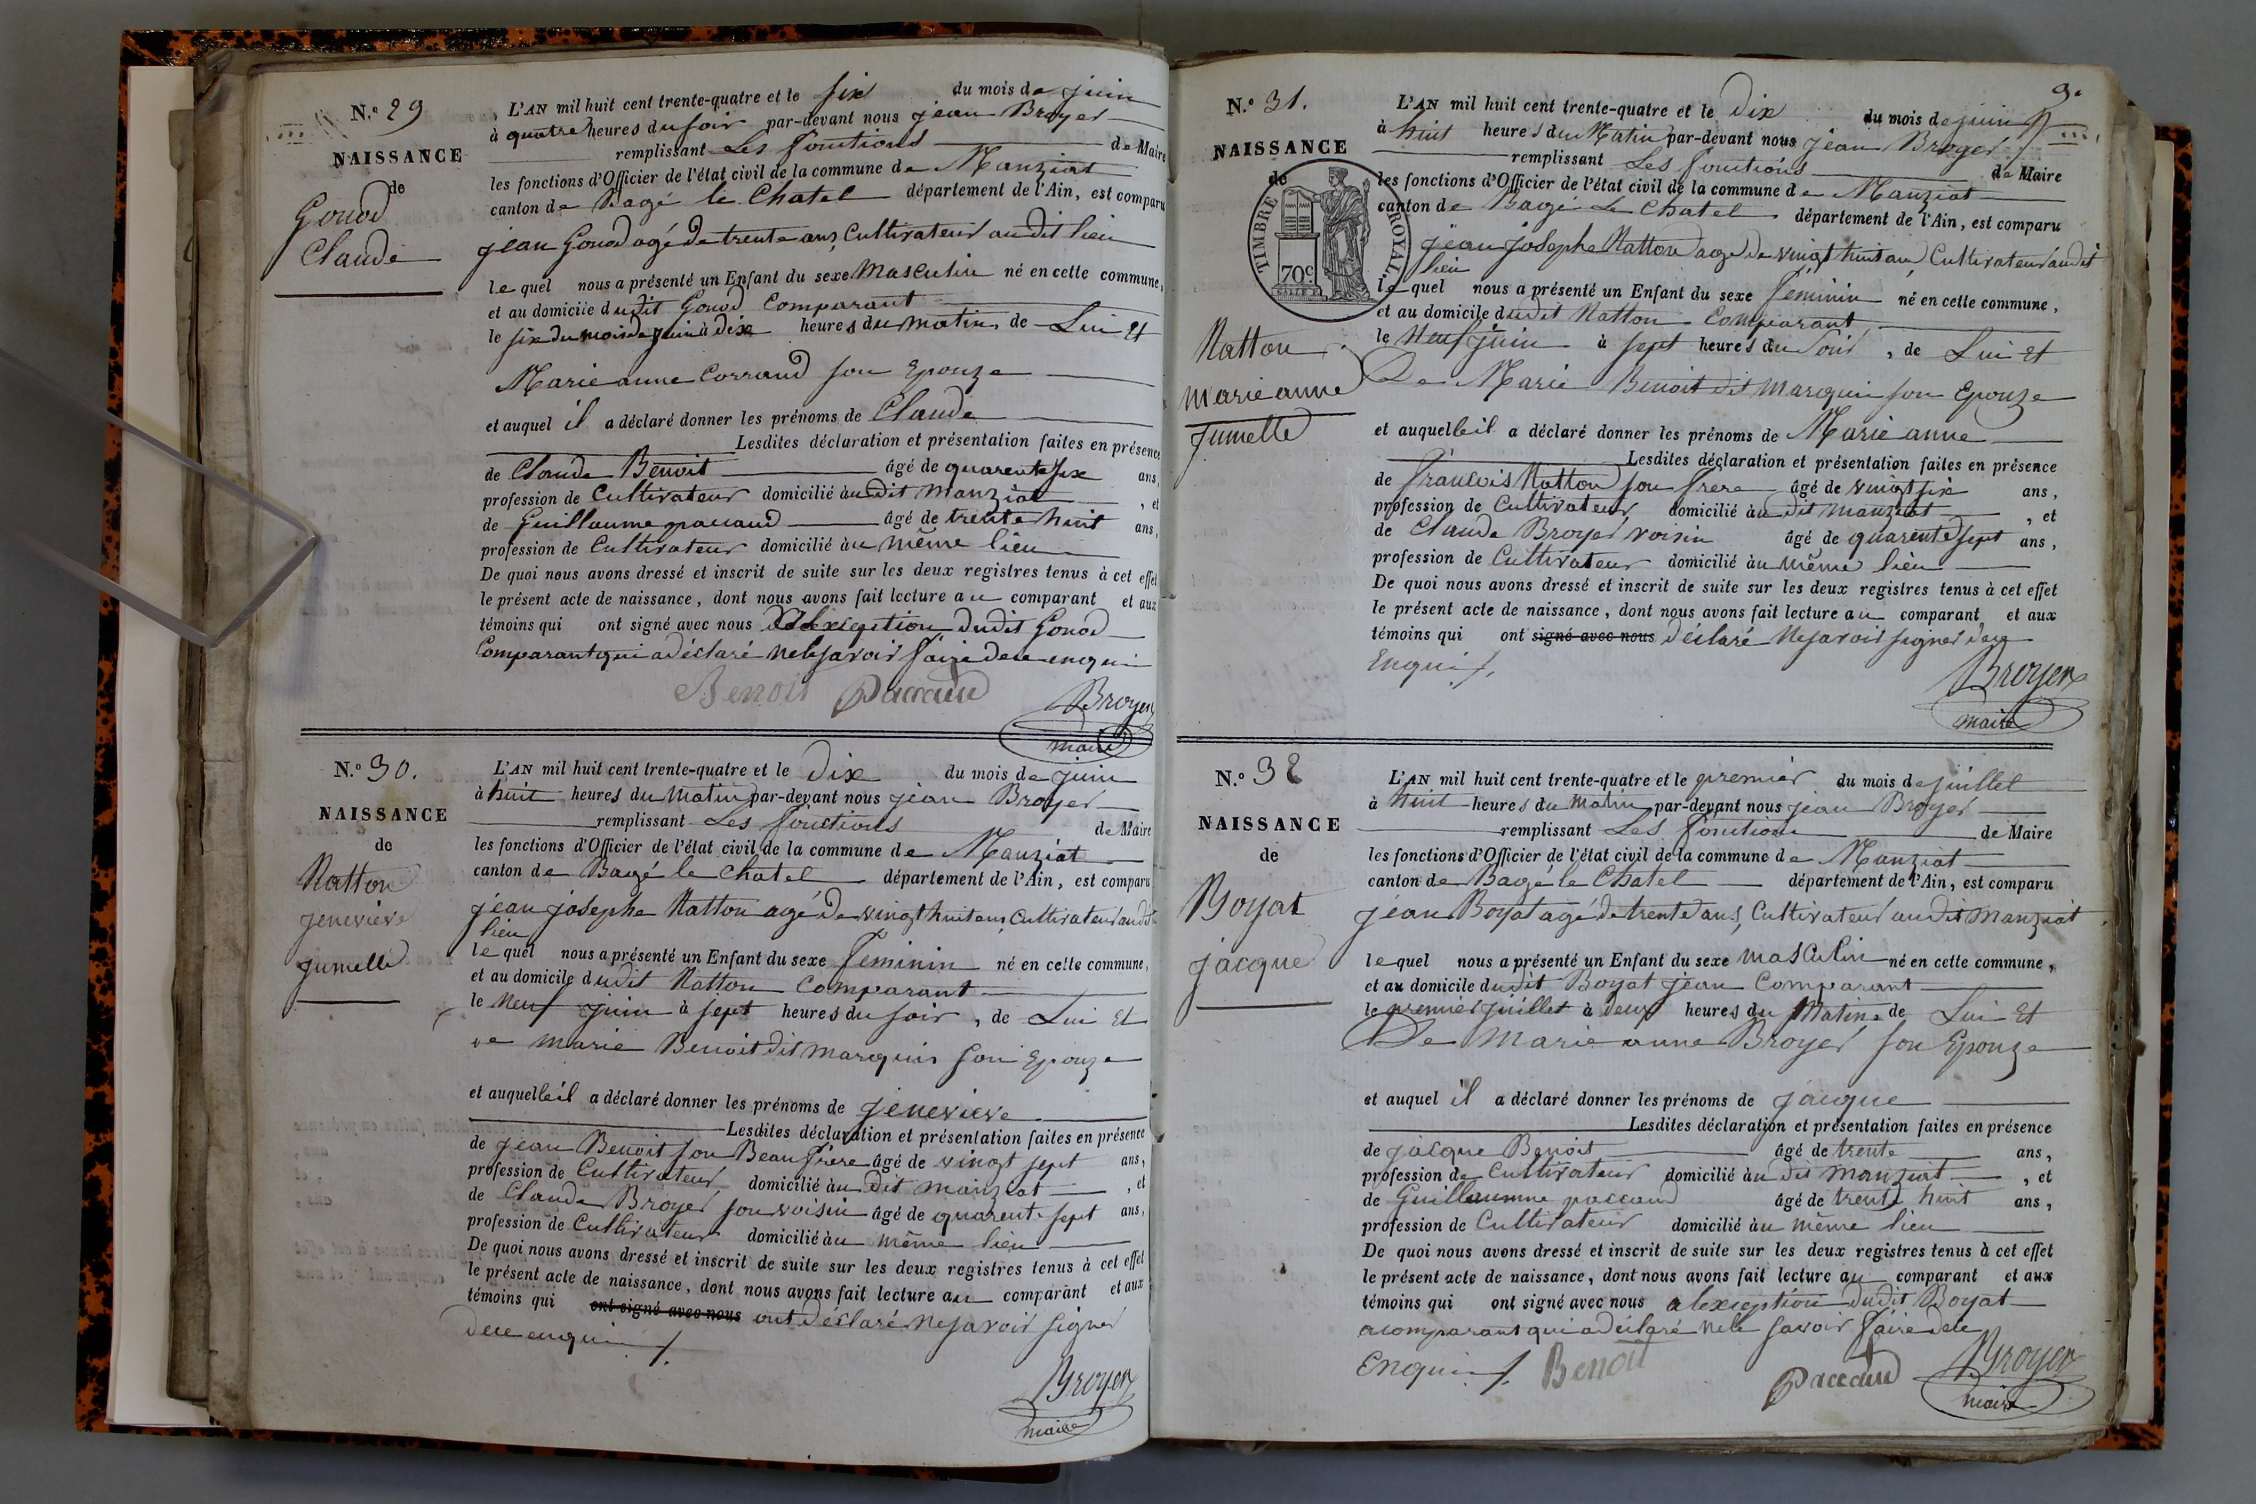 N.º 29
NAISSANCE
de
Gonod
Claude
L'AN mil huit cent trente-quatre et le six du mois de juin
à quatre heures du soir par-devant nous jean Broyer
remplissant Les fonctions de Maire
les fonctions d'Officier de l'état civil de la commune de Manziat
canton de Bagé le Chatel département de l'Ain, est comparu
jean Gonod agé de trente ans, Cultivateur audit lieu
lequel nous a présenté un Enfant du sexe Masculin né en cette commune,
et au domicile dudit Gonod Comparant
le six du mois de juin à dix heures du matin de Lui Et
Marie anne Corrand son Epouze
et auquel il a déclaré donner les prénoms de Claude
Lesdites déclaration et présentation faites en présence
de Claude Benoit âgé de quarente six ans,
profession de Cultivateur domicilié audit Manziat, et
de Guillaume paccaud âgé de trente huit ans,
profession de Cultivateur domicilié au même lieu
De quoi nous avons dressé et inscrit de suite sur les deux registres tenus à cet effet
le présent acte de naissance, dont nous avons fait lecture au comparant et aux
témoins qui ont signé avec nous alexception dudit Gonod
Comparant qui a déclaré nele savoir faire dece enquis
Benoit Paccaud Broyer
maire
N.º 30.
NAISSANCE
de
Natton
jenevieve
jumelle
L'AN mil huit cent trente-quatre et le dix du mois de juin
à huit heures du Matin par-devant nous jean Broyer
remplissant Les fonctions de Maire
les fonctions d'Officier de l'état civil de la commune de Manziat
canton de Bagé le Chatel département de l'Ain, est comparu
jean josephe Natton agé de vingt huit ans, Cultivateur audit
lieu
lequel nous a présenté un Enfant du sexe Feminin né en cette commune,
et au domicile dudit Natton Comparant
le Neuf juin à sept heures du soir, de Lui Et
de marie Benoit dit marquis son Epouze
et auquelle il a déclaré donner les prénoms de jenevieve
Lesdites déclaration et présentation faites en présence
de jean Benoit son Beau frere âgé de vingt sept ans,
profession de Cultivateur domicilié audit manziat, et
de Claude Broyer son voisin âgé de quarente sept ans,
profession de Cultivateur domicilié au même lieu
De quoi nous avons dressé et inscrit de suite sur les deux registres tenus à cet effet
le présent acte de naissance, dont nous avons fait lecture au comparant et aux
témoins qui ont signé avec nous ont déclaré Nesavoir signer
dece enquis
Broyer
maire
9.
N.º 31.
NAISSANCE
de
TIMBRE ROYAL
70c
Natton
marie anne
jumelle
L'AN mil huit cent trente-quatre et le dix du mois de juin
à huit heures du Matin par-devant nous jean Broyer
remplissant Les fonctions de Maire
les fonctions d'Officier de l'état civil de la commune de Manziat
canton de Bagé Le Chatel département de l'Ain, est comparu
jean josephe Natton agé de vingt huit ans Cultivateur audit
lieu
lequel nous a présenté un Enfant du sexe feminin né en cette commune,
et au domicile dudit Natton Comparant
le Neuf juin à sept heures du Soir, de Lui Et
De Marie Benoit dit Marquis son Epouze
et auquelle il a déclaré donner les prénoms de Marie anne
Lesdites déclaration et présentation faites en présence
de francois Natton son frere âgé de vingt six ans,
profession de Cultivateur domicilié audit manziat, et
de Claude Broyer voisin âgé de quarente sept ans,
profession de Cultivateur domicilié au même lieu
De quoi nous avons dressé et inscrit de suite sur les deux registres tenus à cet effet
le présent acte de naissance, dont nous avons fait lecture au comparant et aux
témoins qui ont signé avec nous déclaré Nesavoir signer dece
Enquis
Broyer
maire
N.º 32
NAISSANCE
de
Boyat
jacque
L'AN mil huit cent trente-quatre et le premier du mois de juillet
à huit heures du matin par-devant nous jean Broyer
remplissant Les fonctions de Maire
les fonctions d'Officier de l'état civil de la commune de Manziat
canton de Bagé le Chatel département de l'Ain, est comparu
jean Boyat agé de trente ans, Cultivateur audit Manziat
lequel nous a présenté un Enfant du sexe masculin né en cette commune,
et au domicile dudit Boyat jean Comparant
le premier juillet à deux heures du Matin de Lui Et
De Marie anne Broyer son Epouze
et auquel il a déclaré donner les prénoms de jacque
Lesdites déclaration et présentation faites en présence
de jacque Benoit âgé de trente ans,
profession de Cultivateur domicilié audit manziat, et
de Guillaumne paccaud âgé de trente huit ans,
profession de Cultivateur domicilié au même lieu
De quoi nous avons dressé et inscrit de suite sur les deux registres tenus à cet effet
le présent acte de naissance, dont nous avons fait lecture au comparant et aux
témoins qui ont signé avec nous alexception dudit Boyat
comparant qui a déclaré nele savoir faire dece
Enquis Benoit Paccaud Broyer
maire